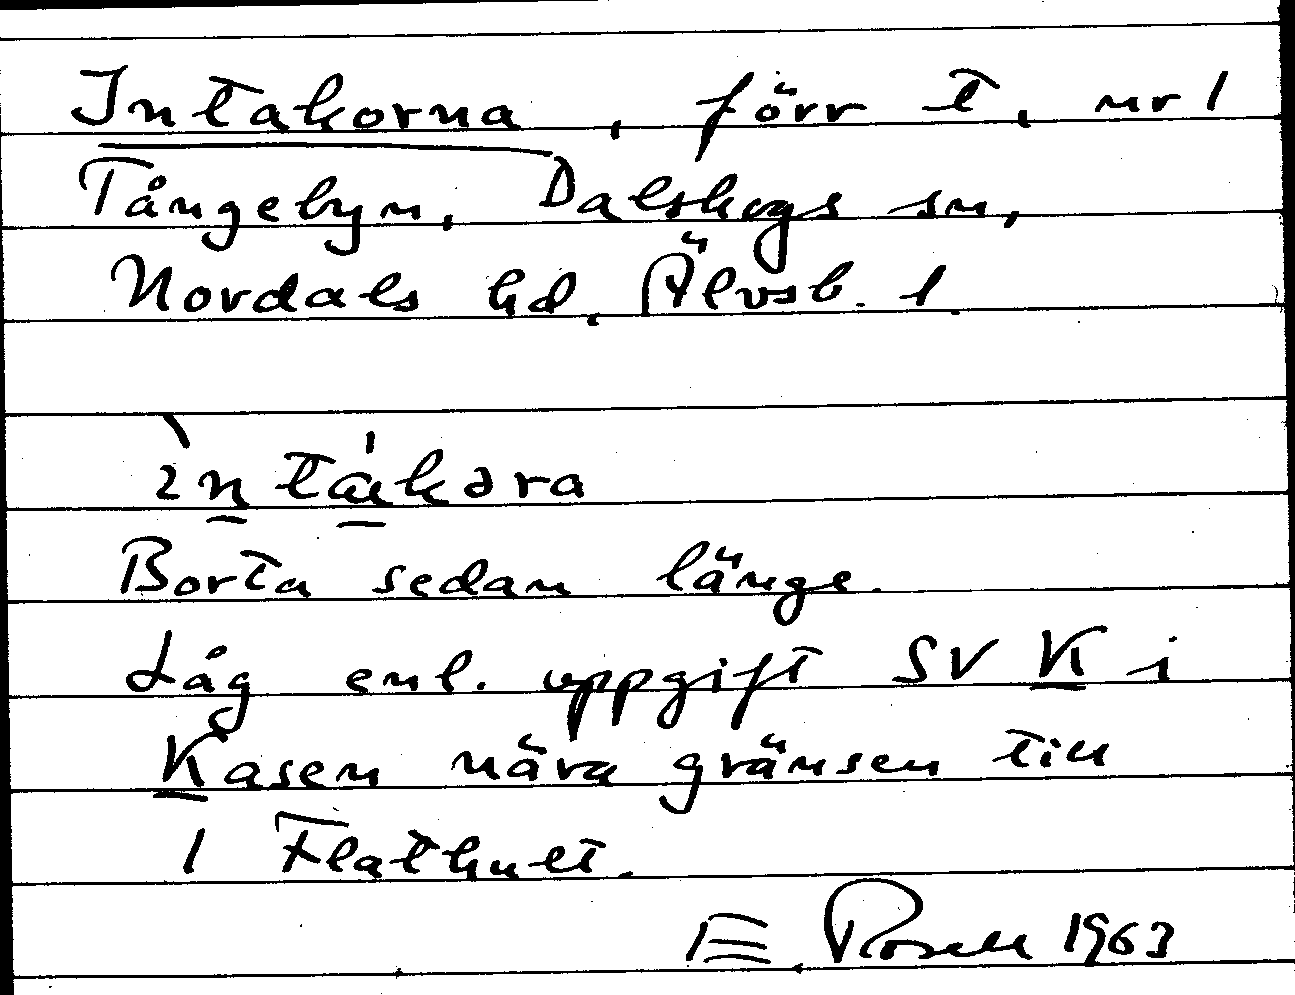 Intakorna, förr t, nr 1
Tångebyn, Dalskogs sn,
Nordals hd, Älvsb. l.
ìntákəra
Borta sedan länge.
Låg enl. uppgift SV K i
Kasen nära gränsen till
1 Flathult.
E. Rosell 1963